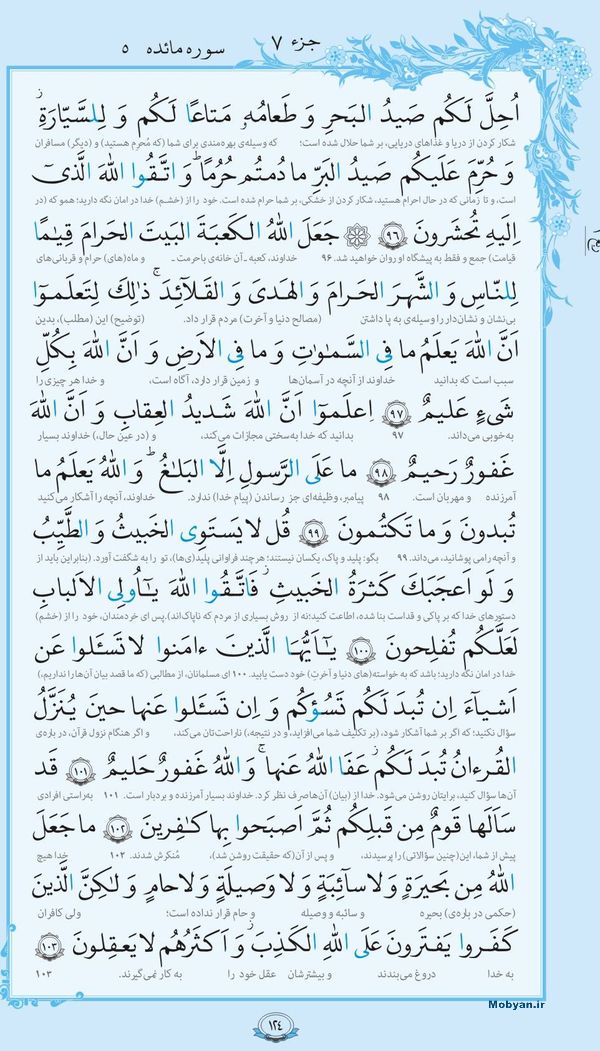 جزء ۷
سوره مائده ۵
اُحِلَّ لَكُم صَيدُ البَحرِ وَ طَعامُهُ مَتاعًا لَكُم وَ لِلسَّيّارَةِ
شکار کردن از دریا و غذاهای دریایی، بر شما حلال شده است؛ که وسیله‌ی بهره‌مندی برای شما (که مُحرِم هستید) و (دیگر) مسافران
وَ حُرِّمَ عَلَيكُم صَيدُ البَرِّ ما دُمتُم حُرُمًا ۗ وَ اتَّقُوا اللهَ الَّذىٓ
است، و تا زمانی که در حال احرام هستید، شکار کردن از خشکی، بر شما حرام شده است. خود را از (خشم) خدا در امان نگه دارید؛ همو که (در
اِلَيهِ تُحشَرونَ ﴿٩٦﴾ جَعَلَ اللهُ الكَعبَةَ البَيتَ الحَرامَ قِيٰمًا
قیامت) جمع و فقط به پیشگاه او روان خواهید شد. ۹۶ خداوند، کعبه ـ آن خانه‌ی باحرمت ـ و ماه(های) حرام و قربانی‌های
لِلنّاسِ وَ الشَّهرَ الحَرامَ وَ الهَدىَ وَ القَلآئِدَ ۚ ذٰلِكَ لِتَعلَموٓا
بی‌نشان و نشان‌دار را وسیله‌ی به پا داشتن (مصالح دنیا و آخرت) مردم قرار داد. (توضیح) این (مطلب)، بدین
اَنَّ اللهَ يَعلَمُ ما فِى السَّمٰوٰتِ وَ ما فِى الاَرضِ وَ اَنَّ اللهَ بِكُلِّ
سبب است که بدانید خداوند از آنچه در آسمان‌ها و زمین قرار دارد، آگاه است، و خدا هر چیزی را
شَىءٍ عَليمٌ ﴿٩٧﴾ اِعلَموٓا اَنَّ اللهَ شَديدُ العِقابِ وَ اَنَّ اللهَ
به‌خوبی می‌داند. ۹۷ بدانید که خدا به‌سختی مجازات می‌کند، و (در عین حال،) خداوند بسیار
غَفورٌ رَحيمٌ ﴿٩٨﴾ ما عَلَى الرَّسولِ اِلَّا البَلاغُ ۗ وَ اللهُ يَعلَمُ ما
آمرزنده و مهربان است. ۹۸ پیامبر، وظیفه‌ای جز رساندن (پیام خدا) ندارد. خداوند، آنچه را آشکار می‌کنید
تُبدونَ وَ ما تَكتُمونَ ﴿٩٩﴾ قُل لا يَستَوِى الخَبيثُ وَ الطَّيِّبُ
و آنچه را می پوشانید، می‌داند. ۹۹ بگو: پلید و پاک، یکسان نیستند؛ هر چند فراوانی پلید(ی‌ها)، تو را به شگفت آورد. (بنابراین باید از
وَ لَو اَعجَبَكَ كَثرَةُ الخَبيثِ ۚ فَاتَّقُوا اللهَ يٰٓاُولِى الاَلبابِ
دستورهای خدا که بر پاکی و قداست بنا شده، اطاعت کنید؛ نه از روش بسیاری از مردم که ناپاک‌اند). پس ای خردمندان، خود را از (خشم)
لَعَلَّكُم تُفلِحونَ ﴿١٠٠﴾ يٰٓاَيُّهَا الَّذينَ ءامَنوا لا تَسـَٔلوا عَن
خدا در امان نگه دارید؛ باشد که به خواسته‌(های دنیا و آخرت) خود دست یابید. ۱۰۰ ای مسلمانان، از مطالبی (که ما قصد بیان آن‌ها را نداریم،)
اَشيآءَ اِن تُبدَ لَكُم تَسُؤكُم وَ اِن تَسـَٔلوا عَنها حينَ يُنَزَّلُ
سؤال نکنید؛ که اگر بر شما آشکار شود، (بر تکلیف شما می‌افزاید، و در نتیجه،) ناراحت‌تان می‌کند، و اگر هنگام نزول قرآن، درباره‌ی
القُرءانُ تُبدَ لَكُم ۚ عَفَا اللهُ عَنها ۗ وَ اللهُ غَفورٌ حَليمٌ ﴿١٠١﴾ قَد
آن‌ها سؤال کنید، برایتان روشن می‌شود. خدا از (بیان) آن‌ها صرف نظر کرد. خداوند بسیار آمرزنده و بردبار است. ۱۰۱ به‌راستی افرادی
سَاَلَها قَومٌ مِن قَبلِكُم ثُمَّ اَصبَحوا بِها كٰفِرينَ ﴿١٠٢﴾ ما جَعَلَ
پیش از شما، این (چنین سؤالاتی) را پرسیدند، و پس از آن (که حقیقت روشن شد)، مُنکرش شدند. ۱۰۲ خدا هیچ
اللهُ مِن بَحيرَةٍ وَ لا سآئِبَةٍ وَ لا وَصيلَةٍ وَ لا حامٍ ۙ وَ لٰكِنَّ الَّذينَ
(حکمی در باره‌ی) بحیره و سائبه و وصیله و حام قرار نداده است؛ ولی کافران
كَفَروا يَفتَرونَ عَلَى اللهِ الكَذِبَ ۖ وَ اَكثَرُهُم لا يَعقِلونَ ﴿١٠٣﴾
به خدا دروغ می‌بندند و بیشترشان عقل خود را به کار نمی‌گیرند. ۱۰۳
۱۲٤
Mobyan.ir